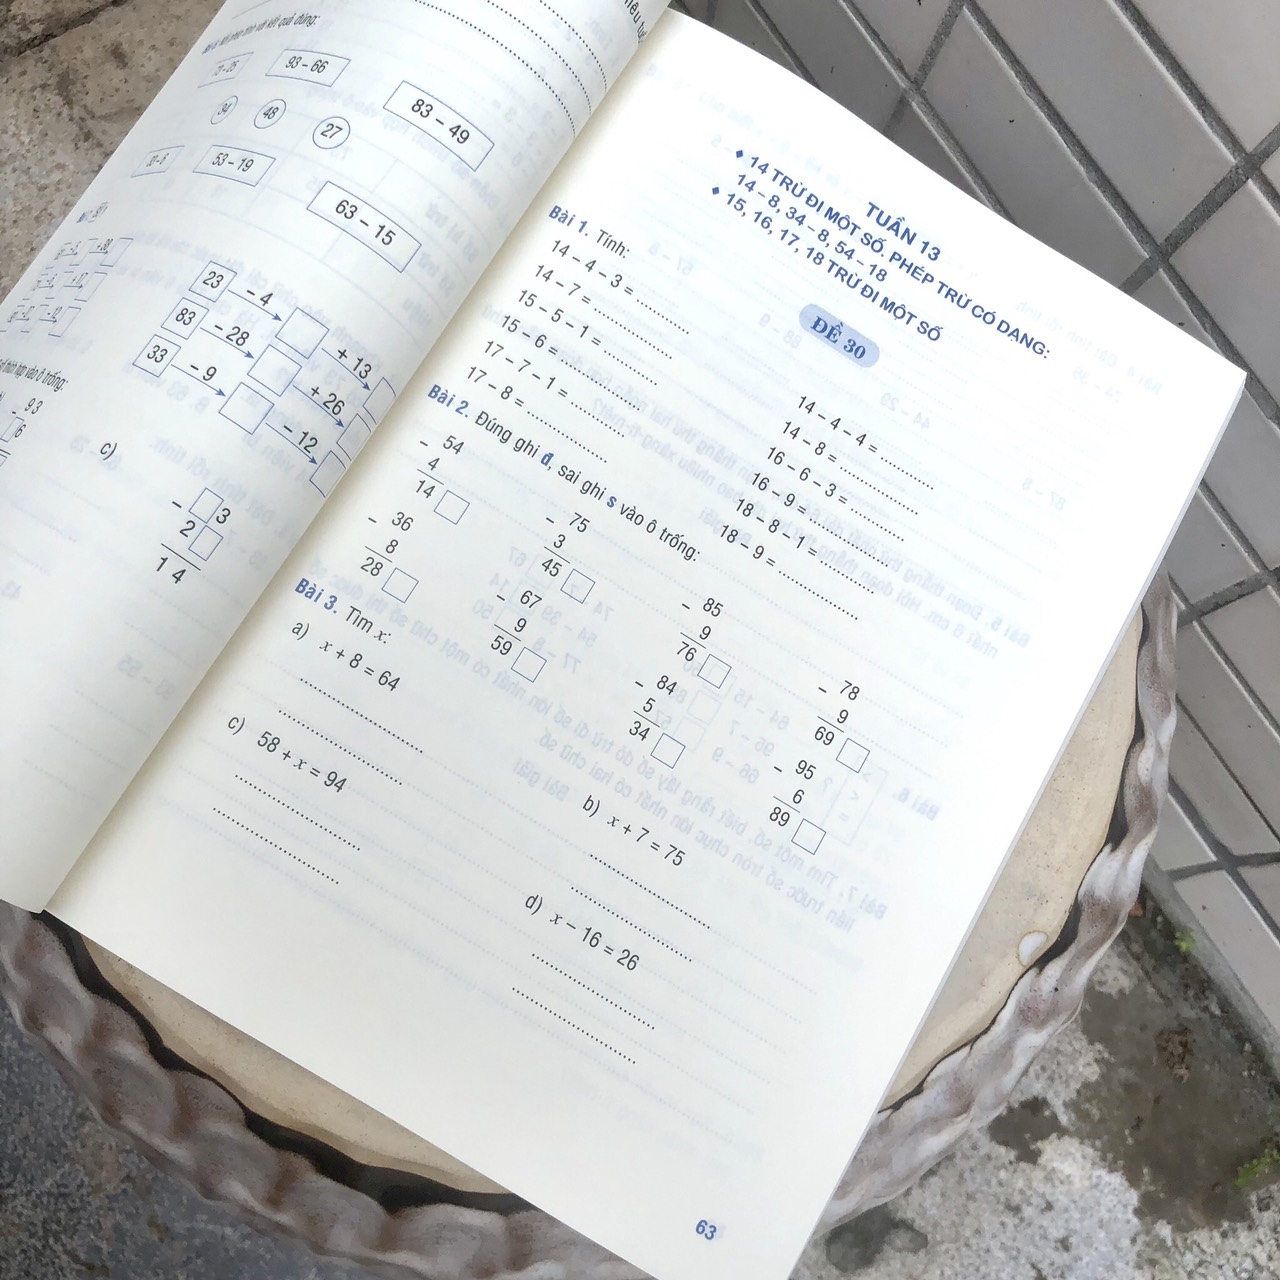 93 – 66
83 – 49
34
48
27
53 – 19
63 – 15
23
– 4
+ 13
83
– 28
+ 26
33
– 9
– 12
vào ô trống:
– 93
6
c)
– 3
2
14
TUẦN 13
♦ 14 TRỪ ĐI MỘT SỐ, PHÉP TRỪ CÓ DẠNG:
14 – 8, 34 – 8, 54 – 18
♦ 15, 16, 17, 18 TRỪ ĐI MỘT SỐ
ĐỀ 30
Bài 1. Tính:
14 – 4 – 3 = ............ 14 – 4 – 4 = ............
14 – 7 = ................. 14 – 8 = .................
15 – 5 – 1 = ............ 16 – 6 – 3 = ............
15 – 6 = ................. 16 – 9 = .................
17 – 7 – 1 = ............ 18 – 8 – 1 = ............
17 – 8 = ................. 18 – 9 = .................
Bài 2. Đúng ghi đ, sai ghi s vào ô trống:
– 54 – 75 – 85 – 78
4 3 9 9
14 45 76 69
– 36 – 67 – 84 – 95
8 9 5 6
28 59 34 89
Bài 3. Tìm x:
a) x + 8 = 64 b) x + 7 = 75
c) 58 + x = 94 d) x – 16 = 26
63